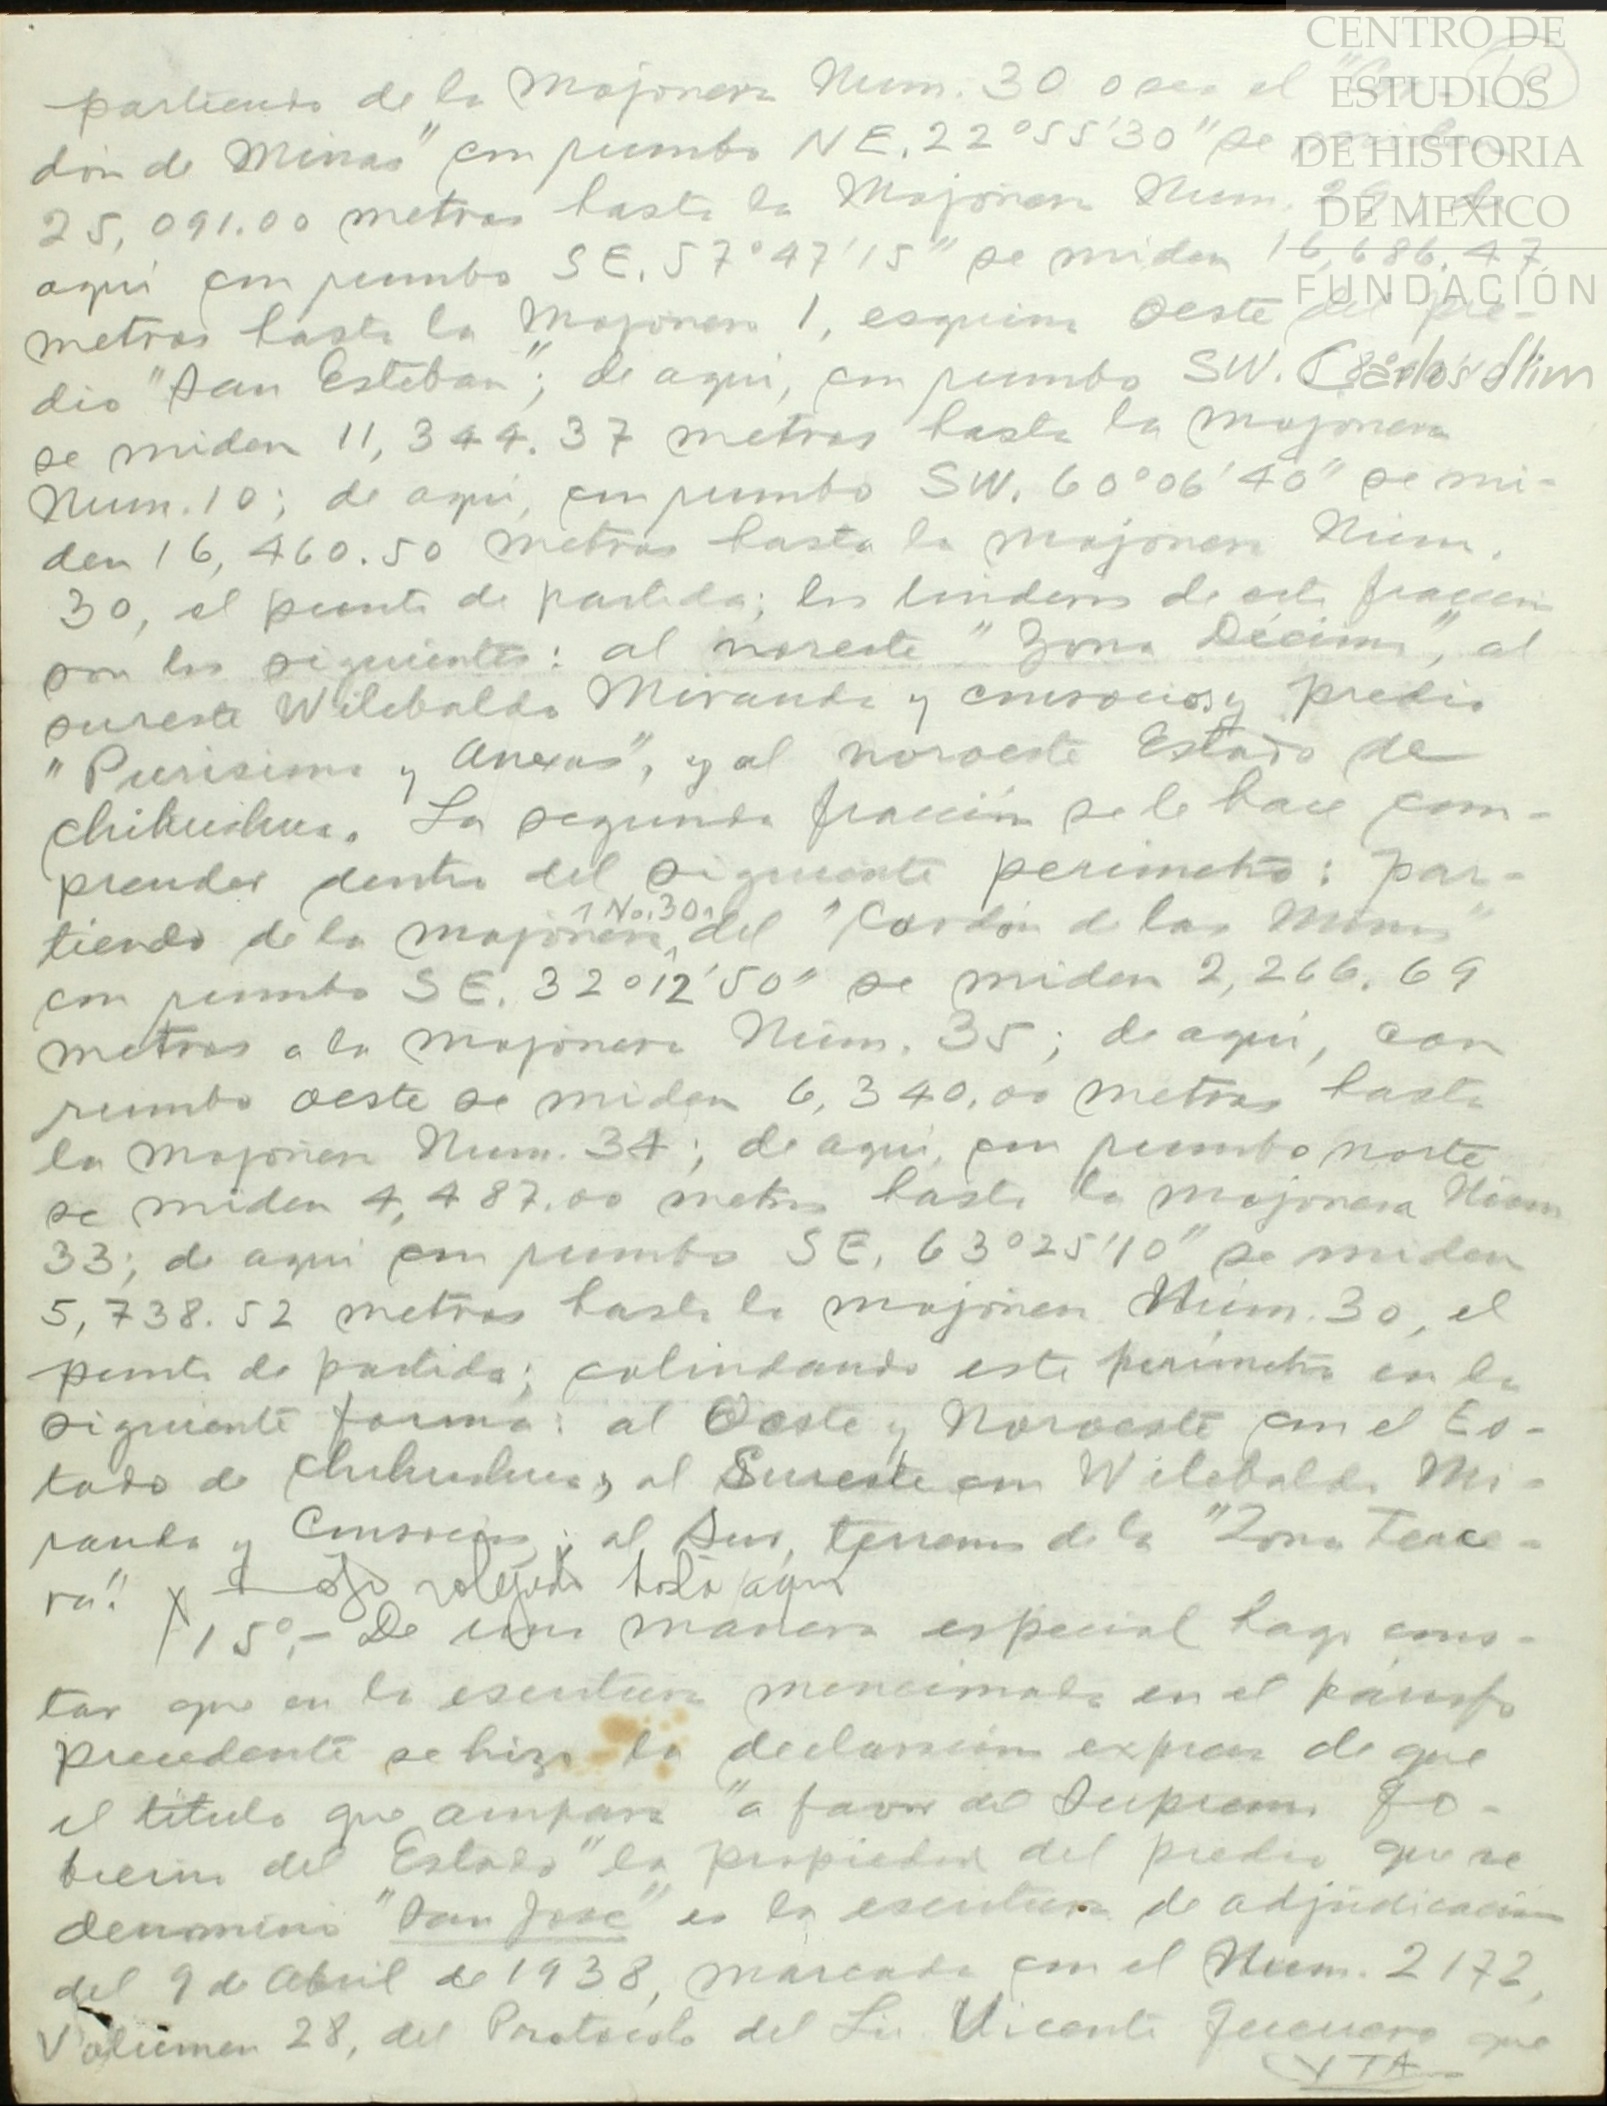 CENTRO DE
ESTUDIOS
DE HISTORIA
DE MEXICO
FUNDACIÓN
Carlos Slim
partiendo de la Mojonera Num. 30 o sea el
dón de Minas" con rumbo NE. 22°55'30" se
25,091.00 metros hasta la Mojonera Num. 29; de
aquí con rumbo SE. 57°47'15" se miden 16,686.47
metros hasta la Mojonera 1, esquina Oeste del pre-
dio "San Esteban"; de aquí, con rumbo SW.
se miden 11,344.37 metros hasta la mojonera
Num. 10; de aquí, con rumbo SW. 60°06'40" se mi-
den 16,460.50 metros hasta la mojonera Núm.
30, el punto de partida; los linderos de esta fracción
son los siguientes: al noreste "Zona Décima", al
sureste Wilebaldo Miranda y consocios y predio
"Purisima y Anexas", y al noroeste Estado de
Chihuahua. La segunda fracción se le hace com-
prender dentro del siguiente perimetro: par-
tiendo de la mojonera No. 30 del "Cordón de las Minas"
con rumbo SE. 32°12'50" se miden 2,266.69
metros a la mojonera Núm. 35; de aquí, con
rumbo oeste se miden 6,340.00 metros hasta
la mojonera Num. 34; de aquí, con rumbo norte
se miden 4,487.00 metros hasta la mojonera Núm
33; de aquí con rumbo SE. 63°25'10" se miden
5,738.52 metros hasta la mojonera Núm. 30, el
punto de partida; colindando este perímetro en la
siguiente forma: al Oeste y Noroeste con el Es-
tado de Chihuahua; al Sureste con Wilebaldo Mi-
randa y Consocios; al Sur, terrenos de la "Zona Terce-
ra". X hasta aquí
15°.- De una manera especial hago cons-
tar que en la escritura mencionada en el párrafo
precedente se hizo la declaración expresa de que
el título que ampara "a favor del Supremo Go-
bierno del Estado" la propiedad del predio que se
denominó "San José" es la escritura de adjudicación
del 9 de Abril de 1938, marcada con el Num. 2172,
Volúmen 28, del Protocolo del Lic. Vicente Guerrero que
VTA